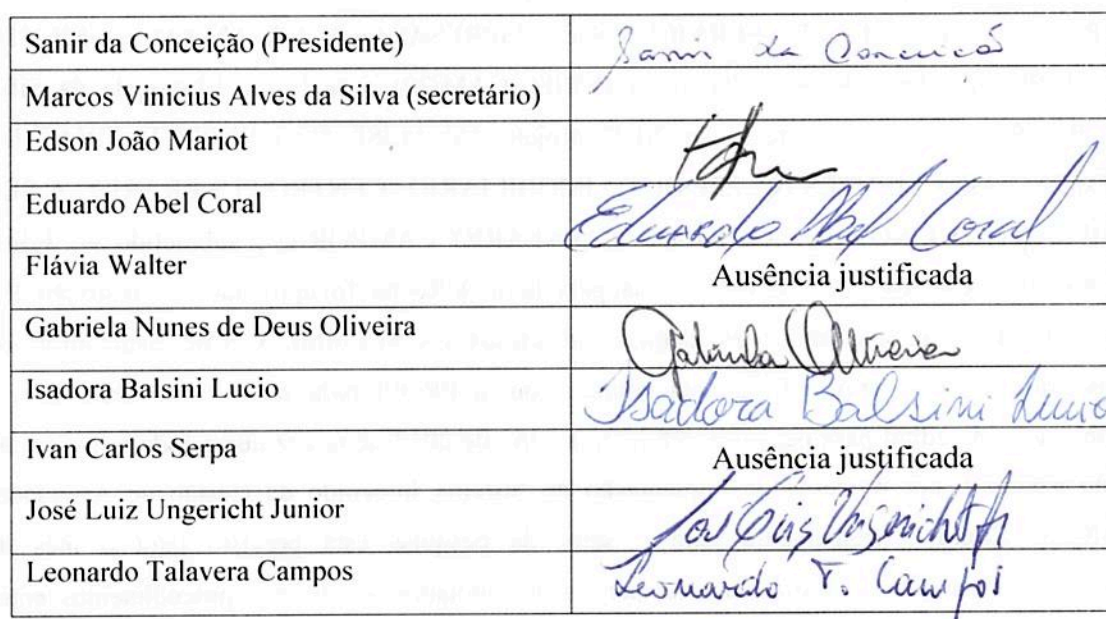 Sanir da Conceição (Presidente) Sanir da Conceição
Marcos Vinicius Alves da Silva (secretário)
Edson João Mariot
Eduardo Abel Coral Eduardo Abel Coral
Flávia Walter Ausência justificada
Gabriela Nunes de Deus Oliveira Gabriela Oliveira
Isadora Balsini Lucio Isadora Balsini Lucio
Ivan Carlos Serpa Ausência justificada
José Luiz Ungericht Junior José Luiz Ungericht Jr
Leonardo Talavera Campos Leonardo T. Campos